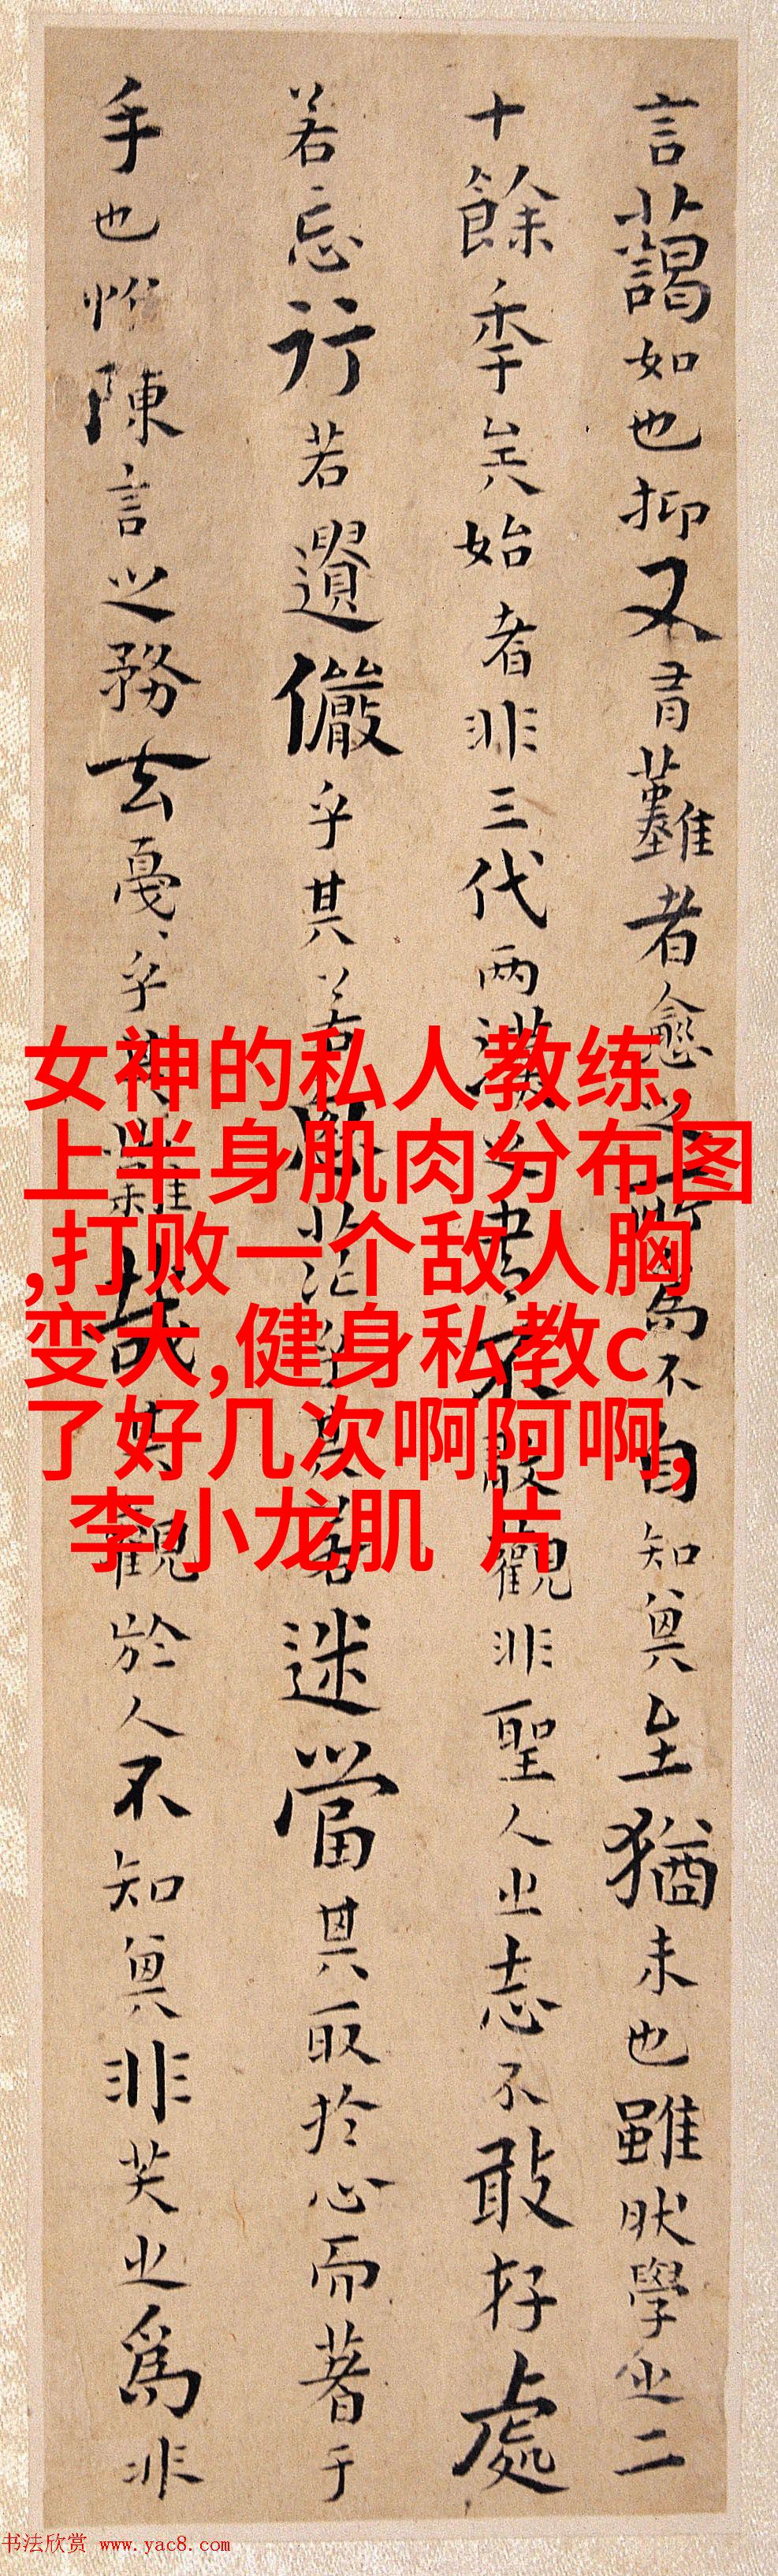 言藹如也抑又有難者愈之所為不自知其至猶未也雖然學之二
十餘年矣始者非三代兩漢之書不敢觀非聖人之志不敢存處
若忘行若遺儼乎其若思茫乎其若迷當其取於心而著于
手也惟陳言之務去戛戛乎其難哉其觀於人不知其非笑之為非
女神的私人教练,
上半身肌肉分布图
,打败一个敌人胸
变大,健身私教c
了好几次啊阿啊,
李小龙肌 片
书法欣赏 www.yac8.com